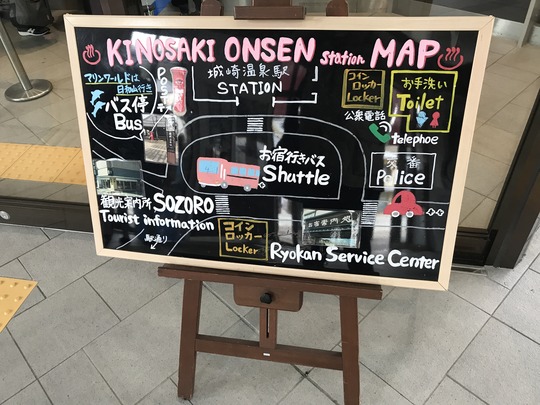 KINOSAKI ONSEN station MAP
マリンワールドは
日和山行き
バス停
Bus
POST
城崎温泉駅
STATION
コイン
ロッカー
Locker
お手洗い
Toilet
公衆電話
telephoe
お宿行きバス
Shuttle
交番
Police
観光案内所 SOZORO
Tourist information
駅通り
コイン
ロッカー
Locker
お宿案内処
Ryokan Service Center